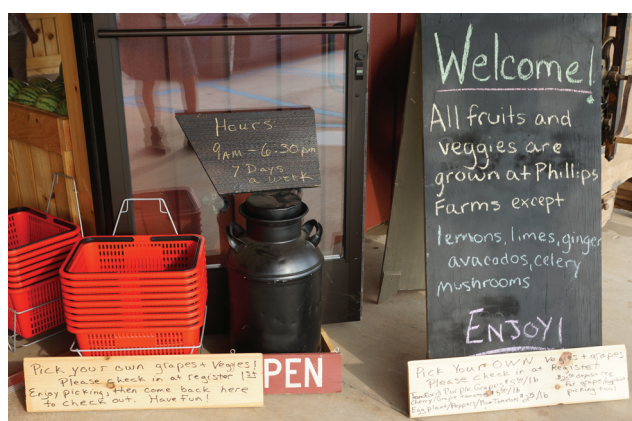 Hours
9AM - 6:30pm
7 Days
a week
Welcome!
All fruits and
veggies are
grown at Phillips
Farms except
lemons, limes, ginger
avacados, celery
mushrooms
ENJOY!
Pick your own grapes + Veggies!
Please check in at register 1st
Enjoy picking, then come back here
to check out. Have fun!
PEN
Pick Your Own Veggies + grapes
Please check in at Register
Purple Grapes
/lb
Cherry/Grape Tomatoes
/lb
Eggplant/Peppers/
/lb